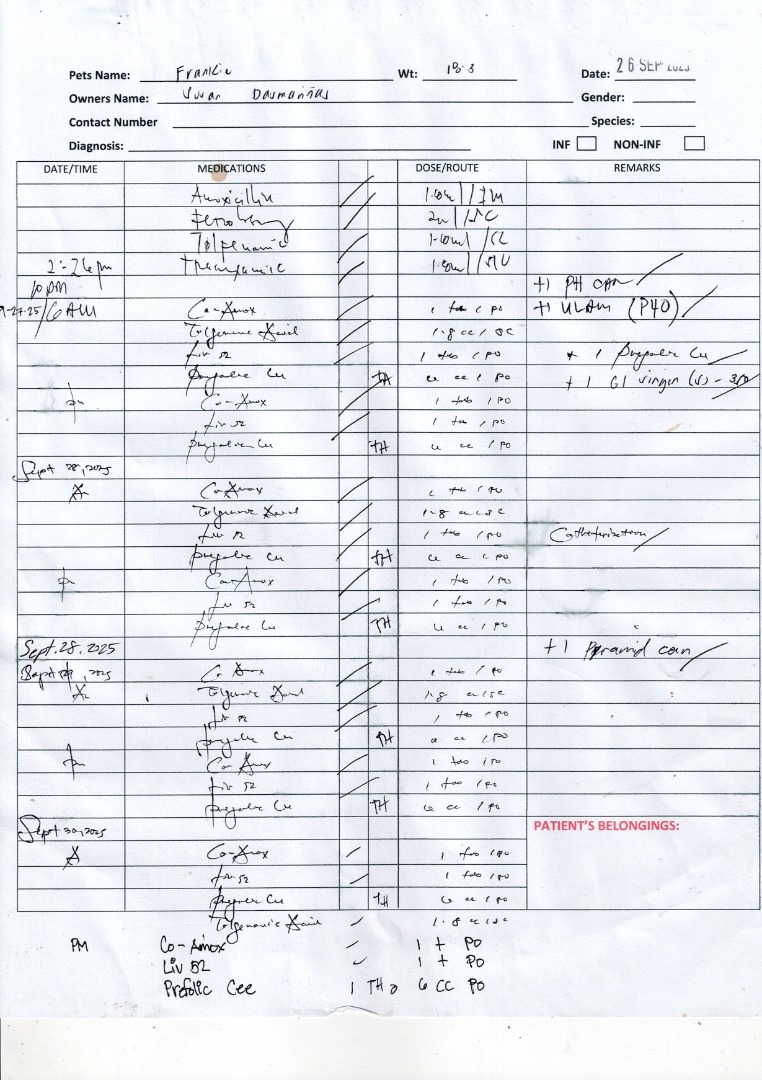 Pets Name: Frankie Wt: 18.3 Date: 26 SEP 2025
Owners Name: Dasmariñas Gender:
Contact Number Species:
Diagnosis: INF NON-INF
DATE/TIME MEDICATIONS DOSE/ROUTE REMARKS
Amoxicillin / IM
Tolfenamic
2:26pm Tranexamic
10pm +1 PH can
9-27-25/6AM Co-Amox 1 tab / PO +1 ULAM (P40)
Tolfenamic Acid 1.8 cc / SC
Liv 52 1 tab / PO + 1 Prefolic Cee
Prefolic Cee TH 6 cc / PO + 1 GI virgin (s) - 350
pm Co-Amox 1 tab / PO
Liv 52 1 tab / PO
Prefolic Cee TH 6 cc / PO
Sept 28, 2025
A Co-Amox 1 tab / PO
Tolfenamic Acid 1.8 cc / SC
Liv 52 1 tab / PO Catheterization
Prefolic Cee TH 6 cc / PO
pm Co-Amox 1 tab / PO
Liv 52 1 tab / PO
Prefolic Cee TH 6 cc / PO
Sept. 28, 2025 +1 Pyramid can
Sept 29, 2025 Co-Amox 1 tab / PO
A Tolfenamic Acid 1.8 cc / SC
Liv 52 1 tab / PO
Prefolic Cee TH 6 cc / PO
pm Co-Amox 1 tab / PO
Liv 52 1 tab / PO
Prefolic Cee TH 6 cc / PO
Sept 30, 2025 PATIENT'S BELONGINGS:
A Co-Amox 1 tab / PO
Liv 52 1 tab / PO
Prefolic Cee TH 6 cc / PO
Tolfenamic Acid 1.8 cc / SC
PM Co-Amox 1 t PO
Liv 52 1 t PO
Prefolic Cee 1 TH 6 CC PO